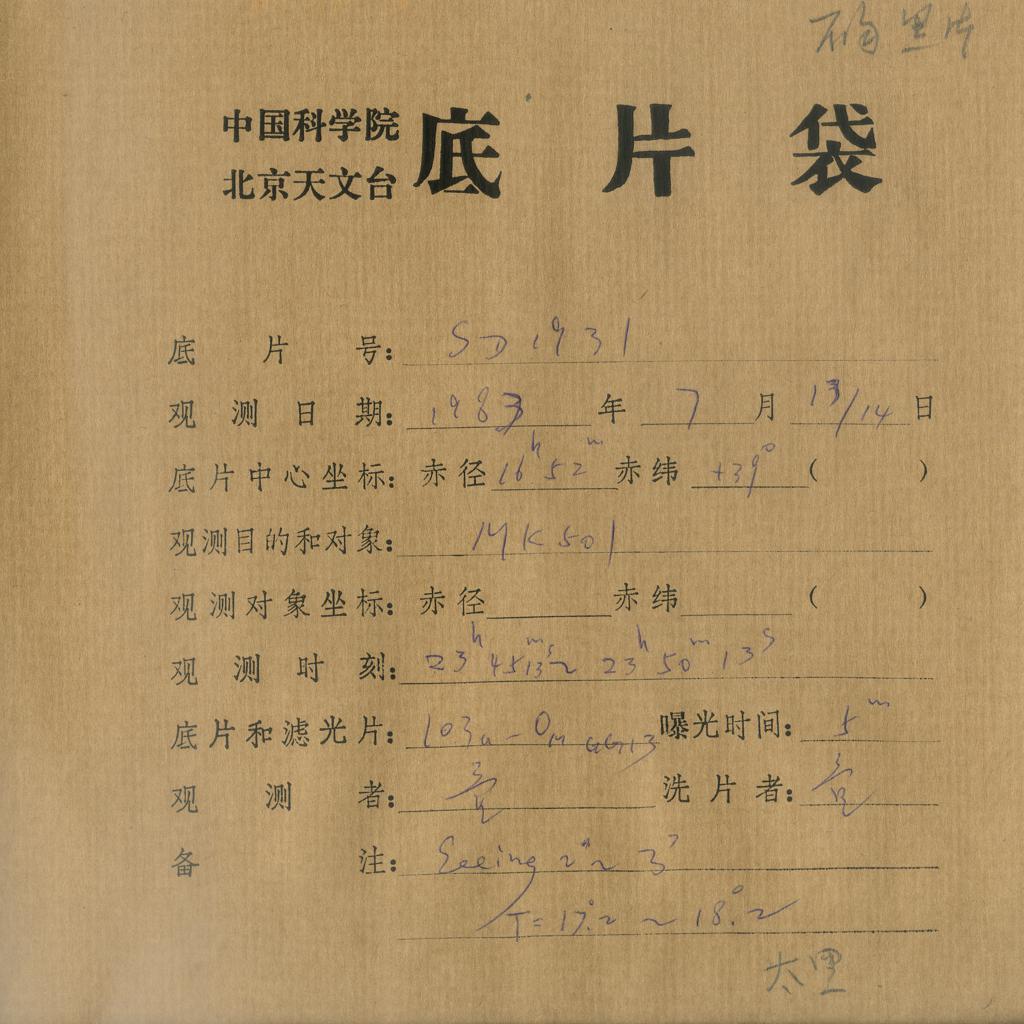 黑片
中国科学院
北京天文台
底片袋
底片号: SD1931
观测日期: 1983年 7月 13/14日
底片中心坐标: 赤径 16h52m 赤纬 +39° ( )
观测目的和对象: MK501
观测对象坐标: 赤径 赤纬 ( )
观测时刻: 23h45m13s~23h50m13s
底片和滤光片: 103a-O GG13 曝光时间: 5m
观测者: 洗片者:
备注: Seeing 2"~3"
T=17°.2~18°.2
太黑